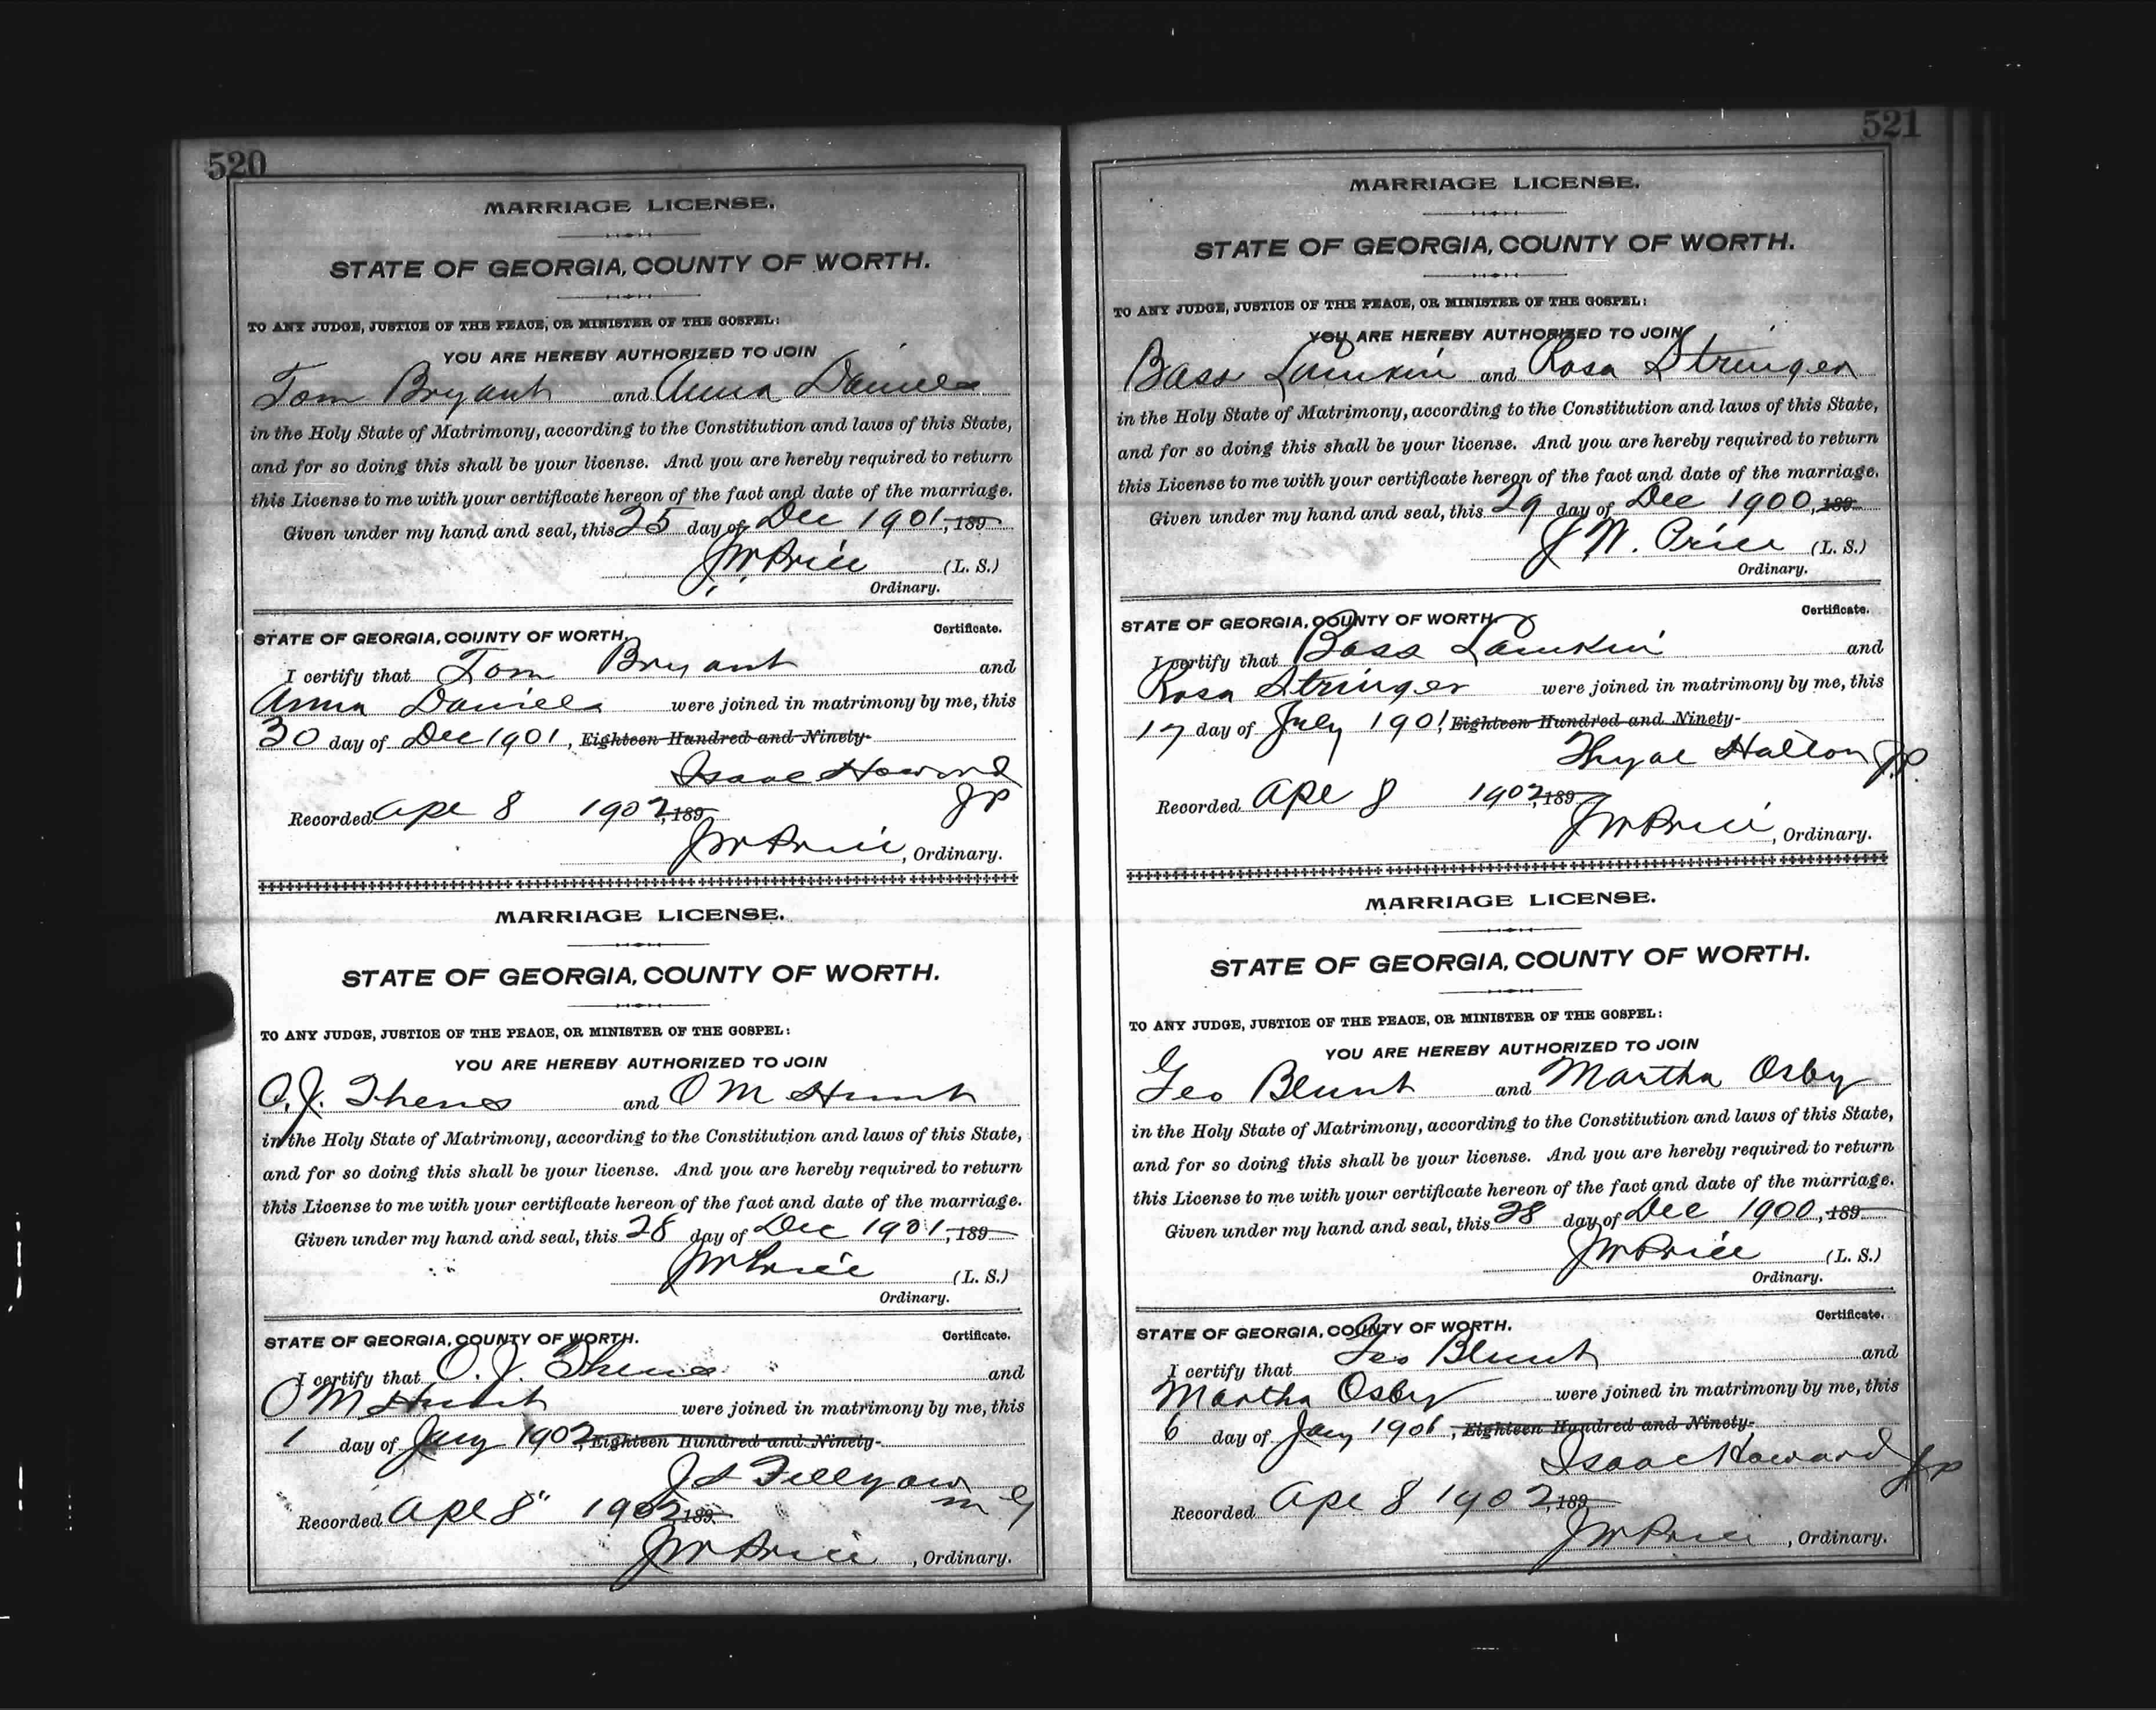 520
MARRIAGE LICENSE.
STATE OF GEORGIA, COUNTY OF WORTH.
TO ANY JUDGE, JUSTICE OF THE PEACE, OR MINISTER OF THE GOSPEL:
YOU ARE HEREBY AUTHORIZED TO JOIN
Tom Bryant and Anna Daniels
in the Holy State of Matrimony, according to the Constitution and laws of this State,
and for so doing this shall be your license. And you are hereby required to return
this License to me with your certificate hereon of the fact and date of the marriage.
Given under my hand and seal, this 25 day of Dec 1901, 189
JW Price (L. S.)
Ordinary.
STATE OF GEORGIA, COUNTY OF WORTH. Certificate.
I certify that Tom Bryant and
Anna Daniels were joined in matrimony by me, this
30 day of Dec 1901, Eighteen Hundred and Ninety-
Isaac Howard
JP
Recorded Apl 8 1902, 189
JW Price, Ordinary.
MARRIAGE LICENSE.
STATE OF GEORGIA, COUNTY OF WORTH.
TO ANY JUDGE, JUSTICE OF THE PEACE, OR MINISTER OF THE GOSPEL:
YOU ARE HEREBY AUTHORIZED TO JOIN
O. J. and O M Hunt
in the Holy State of Matrimony, according to the Constitution and laws of this State,
and for so doing this shall be your license. And you are hereby required to return
this License to me with your certificate hereon of the fact and date of the marriage.
Given under my hand and seal, this 28 day of Dec 1901, 189
JW Price (L. S.)
Ordinary.
STATE OF GEORGIA, COUNTY OF WORTH. Certificate.
I certify that O. J. and
O M Hunt were joined in matrimony by me, this
1 day of Jany 1902, Eighteen Hundred and Ninety-
J S Fillyaw
M G
Recorded Apl 8" 1902, 189
JW Price, Ordinary.
521
MARRIAGE LICENSE.
STATE OF GEORGIA, COUNTY OF WORTH.
TO ANY JUDGE, JUSTICE OF THE PEACE, OR MINISTER OF THE GOSPEL:
YOU ARE HEREBY AUTHORIZED TO JOIN
Bass Lamkin and Rosa Stringer
in the Holy State of Matrimony, according to the Constitution and laws of this State,
and for so doing this shall be your license. And you are hereby required to return
this License to me with your certificate hereon of the fact and date of the marriage.
Given under my hand and seal, this 29 day of Dec 1900, 189
J W. Price (L. S.)
Ordinary.
STATE OF GEORGIA, COUNTY OF WORTH. Certificate.
I certify that Bass Lamkin and
Rosa Stringer were joined in matrimony by me, this
17 day of July 1901, Eighteen Hundred and Ninety-
J.P.
Recorded Apl 8 1902, 189
JW Price, Ordinary.
MARRIAGE LICENSE.
STATE OF GEORGIA, COUNTY OF WORTH.
TO ANY JUDGE, JUSTICE OF THE PEACE, OR MINISTER OF THE GOSPEL:
YOU ARE HEREBY AUTHORIZED TO JOIN
Geo Blunt and Martha Osby
in the Holy State of Matrimony, according to the Constitution and laws of this State,
and for so doing this shall be your license. And you are hereby required to return
this License to me with your certificate hereon of the fact and date of the marriage.
Given under my hand and seal, this 28 day of Dec 1900, 189
JW Price (L. S.)
Ordinary.
STATE OF GEORGIA, COUNTY OF WORTH. Certificate.
I certify that Geo Blunt and
Martha Osby were joined in matrimony by me, this
6 day of Jany 1901, Eighteen Hundred and Ninety-
Isaac Howard JP
Recorded Apl 8 1902, 189
JW Price, Ordinary.